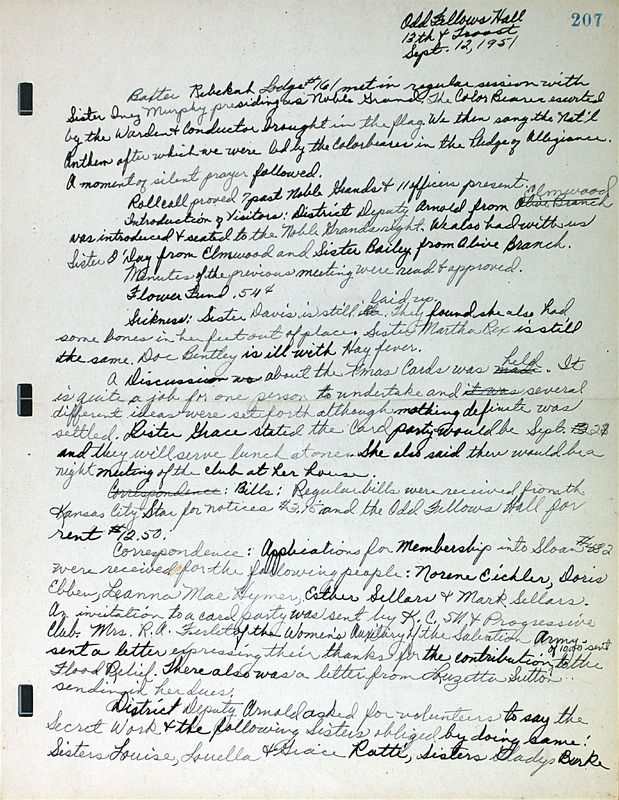 207
Odd Fellows Hall
13th & Troost
Sept. 12, 1951
Baxter Rebekah Lodge #161 met in regular session with
Sister Inez Murphy presiding as Noble Grand. The Color Bearer escorted
by the Warden & Conductor brought in the flag. We then sang the Nat'l
Anthem after which we were led by the Colorbearer in the Pledge of Allegiance.
A moment of silent prayer followed.
Rollcall proved 7 past Noble Grands & 11 officers present. Elmwood
Introduction of Visitors: District Deputy Arnold from Olive Branch
was introduced & seated to the Noble Grands right. We also had with us
Sister O'Day from Elmwood and Sister Bailey from Olive Branch.
Minutes of the previous meeting were read & approved.
Flower Fund .54¢
laid up.
Sickness: Sister Davis is still They found she also had
some bones in her feet out of place. Sister Martha Rex is still
the same. Doc Bentley is ill with Hay fever.
held
A Discussion about the Xmas Cards was made. It
is quite a job for one person to undertake and it was several
different ideas were set forth although nothing definite was
settled. Sister Grace stated the Card party would be Sept.
and they will serve lunch at one. She also said there would be a
night meeting of the club at her house.
Correspondence: Bills: Regular bills were received from th
Kansas City Star for notices and the Odd Fellows Hall for
rent $12.50.
Correspondence: Applications for Membership into Sloan
were received for the following people: Norene Eichler, Doris
Ebben, Leanna Mae Hymer, Esther Sellars & Mark Sellars.
An invitation to a card party was sent by K.C. & Progressive
Club. Mrs. R.A. of the Women's Auxiliary of the Salvation Army
of 10.00 sent
sent a letter expressing their thanks for the contribution to the
Flood Relief. There also was a letter from Sutton
sending in her dues.
District Deputy Arnold asked for volunteers to say the
Secret Work & the following Sisters obliged by doing same:
Sisters Louise, Louella & Grace Ratti, Sisters Gladys Burke